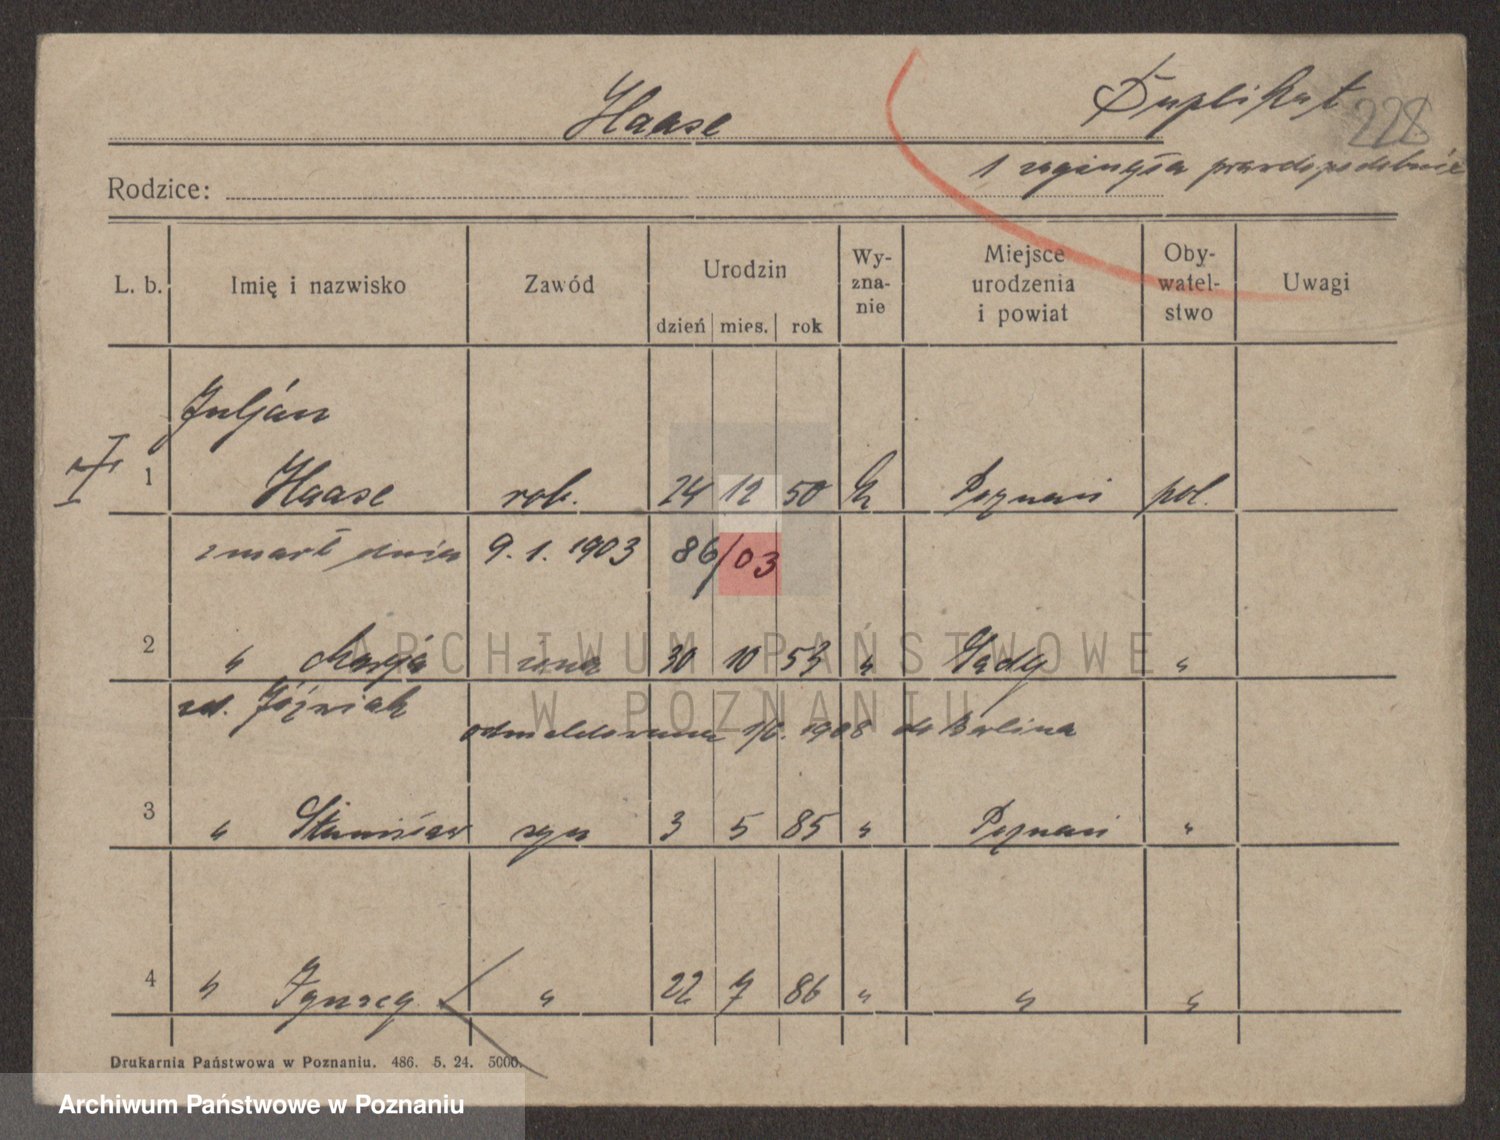 Haase
Duplikat
228
1 zaginęła prawdopodobnie
Rodzice:
L. b. Imię i nazwisko Zawód Urodzin dzień mies. rok Wy-zna-nie Miejsce urodzenia i powiat Oby-watel-stwo Uwagi
Juljan
1 Haase rob. 24 12 50 k Poznań pol.
zmarł dnia 9. 1. 1903 86/03
2 " Marja żona 30 10 53 " Gądy "
zd. Józwiak
odmeldowana 1908 do Berlina
3 " Stanisław syn 3 5 85 " Poznań "
4 " Ignacy " 22 7 86 " " "
Drukarnia Państwowa w Poznaniu. 486. 5. 24. 5000.
ARCHIWUM PAŃSTWOWE
W POZNANIU
Archiwum Państwowe w Poznaniu